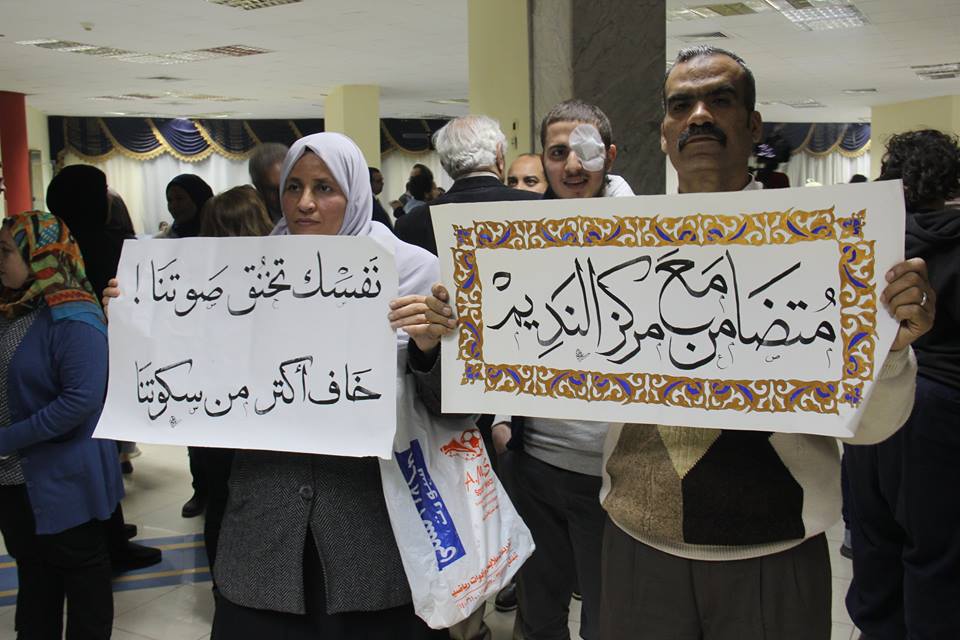 نَفسْك تخنُق صَوتنَا !
خَاف أكتر من سكوتنَا
مُتضَامن مَعَ مركز النَدِيم
A.M.S